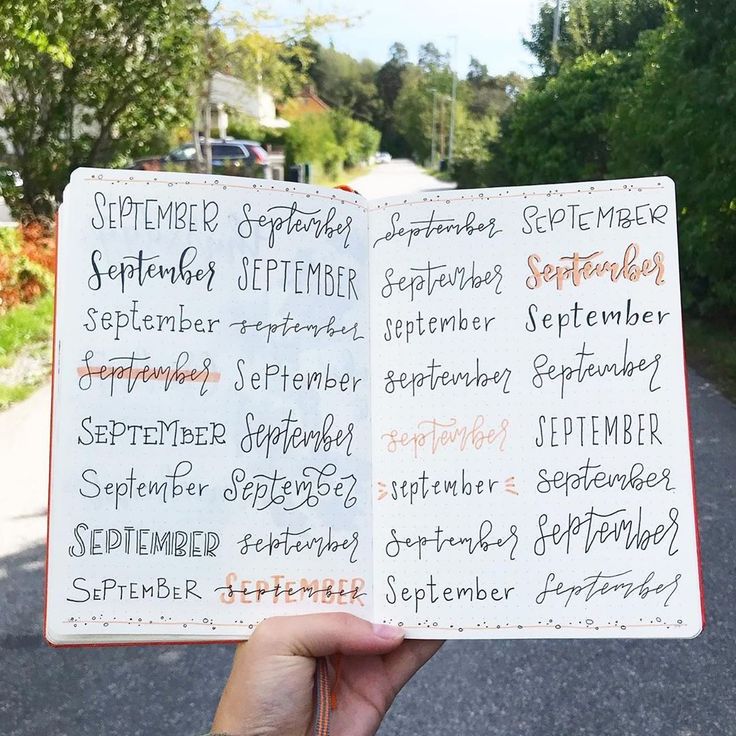 SEPTEMBER September
September SEPTEMBER
september september
September SePtember
SEPTEMBER September
September September
SEPTEMBER september
SEPTEMBER SEPTEMBER september
September SEPTEMBER
September September
september September
september September
september SEPTEMBER
september September
September September
September September